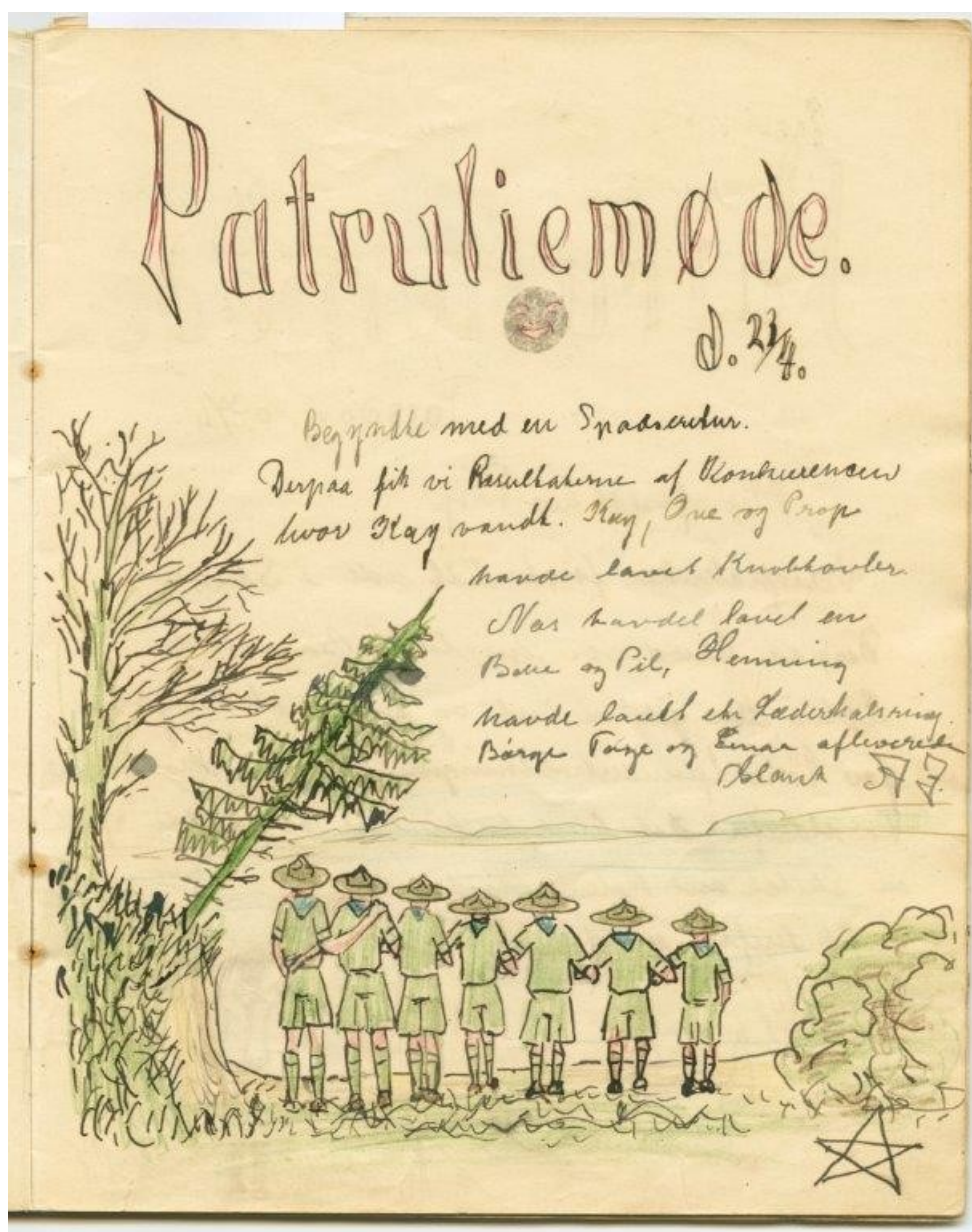 Patruliemøde.
d. 23/4.
Begyndte med en Spadseretur.
Derpaa fik vi Resultaterne af Konkurrencen
hvor Kay vandt. Kay, Ove og Prop
havde lavet Knobtavler.
havde lavet en
Bue og Pil, Henning
havde lavet en Læderhalsring.
Børge Tage og Einar afleverede
blank AJ.